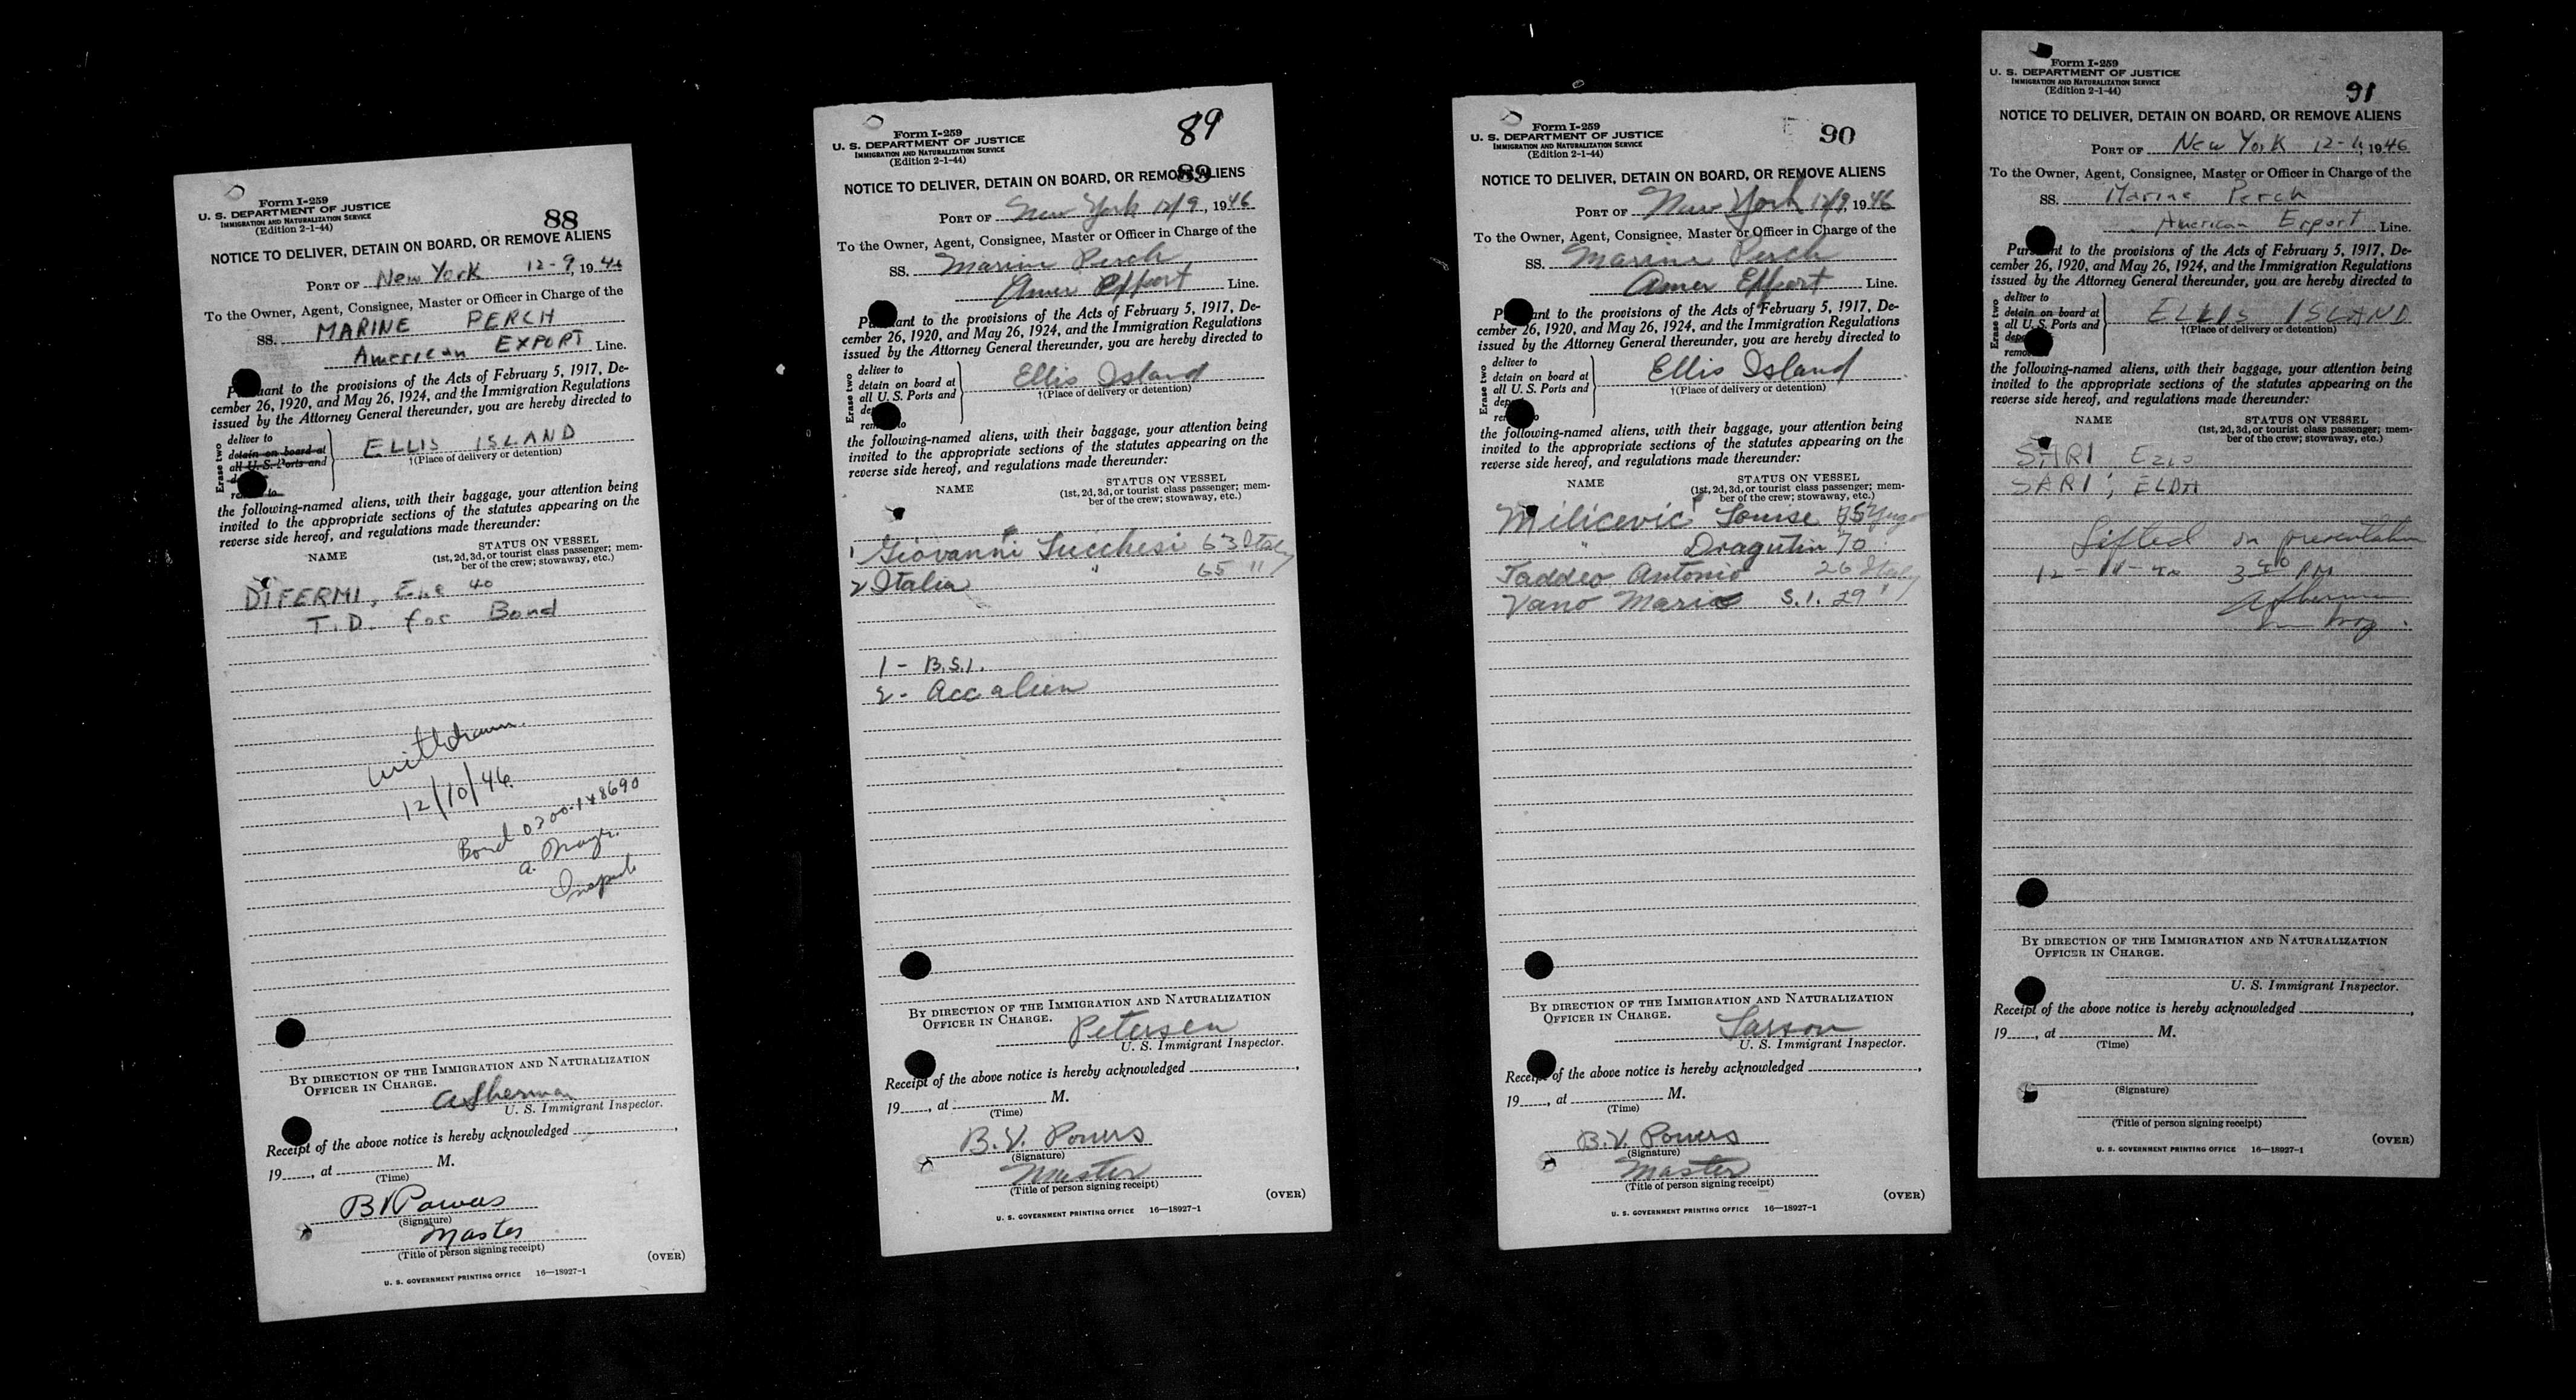 Form I-259
U. S. DEPARTMENT OF JUSTICE
IMMIGRATION AND NATURALIZATION SERVICE
(Edition 2-1-44)
88
NOTICE TO DELIVER, DETAIN ON BOARD, OR REMOVE ALIENS
PORT OF New York 12-9, 1946
To the Owner, Agent, Consignee, Master or Officer in Charge of the
SS. MARINE PERCH
American EXPORT Line.
Pursuant to the provisions of the Acts of February 5, 1917, De-
cember 26, 1920, and May 26, 1924, and the Immigration Regulations
issued by the Attorney General thereunder, you are hereby directed to
Erase two
deliver to
detain on board at
all U. S. Ports and
ELLIS ISLAND
†(Place of delivery or detention)
the following-named aliens, with their baggage, your attention being
invited to the appropriate sections of the statutes appearing on the
reverse side hereof, and regulations made thereunder:
NAME
STATUS ON VESSEL
(1st, 2d, 3d, or tourist class passenger; mem-
ber of the crew; stowaway, etc.)
DIFERMI, 40
T.D. for Bond
withdrawn
12/10/46
Bond 0300-148690
a.
By direction of the Immigration and Naturalization
Officer in Charge.
A Sherman
U. S. Immigrant Inspector.
Receipt of the above notice is hereby acknowledged
19, at M.
(Time)
B V Powers
(Signature)
Master
(Title of person signing receipt)
(OVER)
U. S. GOVERNMENT PRINTING OFFICE 16—18927-1
Form I-259
U. S. DEPARTMENT OF JUSTICE
IMMIGRATION AND NATURALIZATION SERVICE
(Edition 2-1-44)
89
89
NOTICE TO DELIVER, DETAIN ON BOARD, OR REMOVE ALIENS
PORT OF New York 12/9, 1946
To the Owner, Agent, Consignee, Master or Officer in Charge of the
SS. Marine Perch
Amer Export Line.
Pursuant to the provisions of the Acts of February 5, 1917, De-
cember 26, 1920, and May 26, 1924, and the Immigration Regulations
issued by the Attorney General thereunder, you are hereby directed to
Erase two
deliver to
detain on board at
all U. S. Ports and
Ellis Island
†(Place of delivery or detention)
the following-named aliens, with their baggage, your attention being
invited to the appropriate sections of the statutes appearing on the
reverse side hereof, and regulations made thereunder:
NAME
STATUS ON VESSEL
(1st, 2d, 3d, or tourist class passenger; mem-
ber of the crew; stowaway, etc.)
1 Giovanni Lucchesi 63 Italy
2 Italia " 65 "
1 - B.S.I.
2 - Acc alien
By direction of the Immigration and Naturalization
Officer in Charge.
Petersen
U. S. Immigrant Inspector.
Receipt of the above notice is hereby acknowledged
19, at M.
(Time)
B. V. Powers
(Signature)
Master
(Title of person signing receipt)
(OVER)
U. S. GOVERNMENT PRINTING OFFICE 16—18927-1
Form I-259
U. S. DEPARTMENT OF JUSTICE
IMMIGRATION AND NATURALIZATION SERVICE
(Edition 2-1-44)
90
NOTICE TO DELIVER, DETAIN ON BOARD, OR REMOVE ALIENS
PORT OF New York 12/9, 1946
To the Owner, Agent, Consignee, Master or Officer in Charge of the
SS. Marine Perch
Amer Export Line.
Pursuant to the provisions of the Acts of February 5, 1917, De-
cember 26, 1920, and May 26, 1924, and the Immigration Regulations
issued by the Attorney General thereunder, you are hereby directed to
Erase two
deliver to
detain on board at
all U. S. Ports and
Ellis Island
†(Place of delivery or detention)
the following-named aliens, with their baggage, your attention being
invited to the appropriate sections of the statutes appearing on the
reverse side hereof, and regulations made thereunder:
NAME
STATUS ON VESSEL
(1st, 2d, 3d, or tourist class passenger; mem-
ber of the crew; stowaway, etc.)
Milicevic Louise Yugo
" Dragutin 70
Taddeo Antonio 26 Italy
Vano Maria S.I. 29 "
By direction of the Immigration and Naturalization
Officer in Charge.
Larson
U. S. Immigrant Inspector.
Receipt of the above notice is hereby acknowledged
19, at M.
(Time)
B.V. Powers
(Signature)
Master
(Title of person signing receipt)
(OVER)
U. S. GOVERNMENT PRINTING OFFICE 16—18927-1
Form I-259
U. S. DEPARTMENT OF JUSTICE
IMMIGRATION AND NATURALIZATION SERVICE
(Edition 2-1-44)
91
NOTICE TO DELIVER, DETAIN ON BOARD, OR REMOVE ALIENS
PORT OF New York 1946
To the Owner, Agent, Consignee, Master or Officer in Charge of the
SS. Marine Perch
American Export Line.
Pursuant to the provisions of the Acts of February 5, 1917, De-
cember 26, 1920, and May 26, 1924, and the Immigration Regulations
issued by the Attorney General thereunder, you are hereby directed to
Erase two
deliver to
detain on board at
all U. S. Ports and
ELLIS ISLAND
†(Place of delivery or detention)
the following-named aliens, with their baggage, your attention being
invited to the appropriate sections of the statutes appearing on the
reverse side hereof, and regulations made thereunder:
NAME
STATUS ON VESSEL
(1st, 2d, 3d, or tourist class passenger; mem-
ber of the crew; stowaway, etc.)
SARI, Ezio
SARI, ELDA
Lifted on presentation
PM
A Sherman
By direction of the Immigration and Naturalization
Officer in Charge.
U. S. Immigrant Inspector.
Receipt of the above notice is hereby acknowledged
19, at M.
(Time)
(Signature)
(Title of person signing receipt)
(OVER)
U. S. GOVERNMENT PRINTING OFFICE 16—18927-1